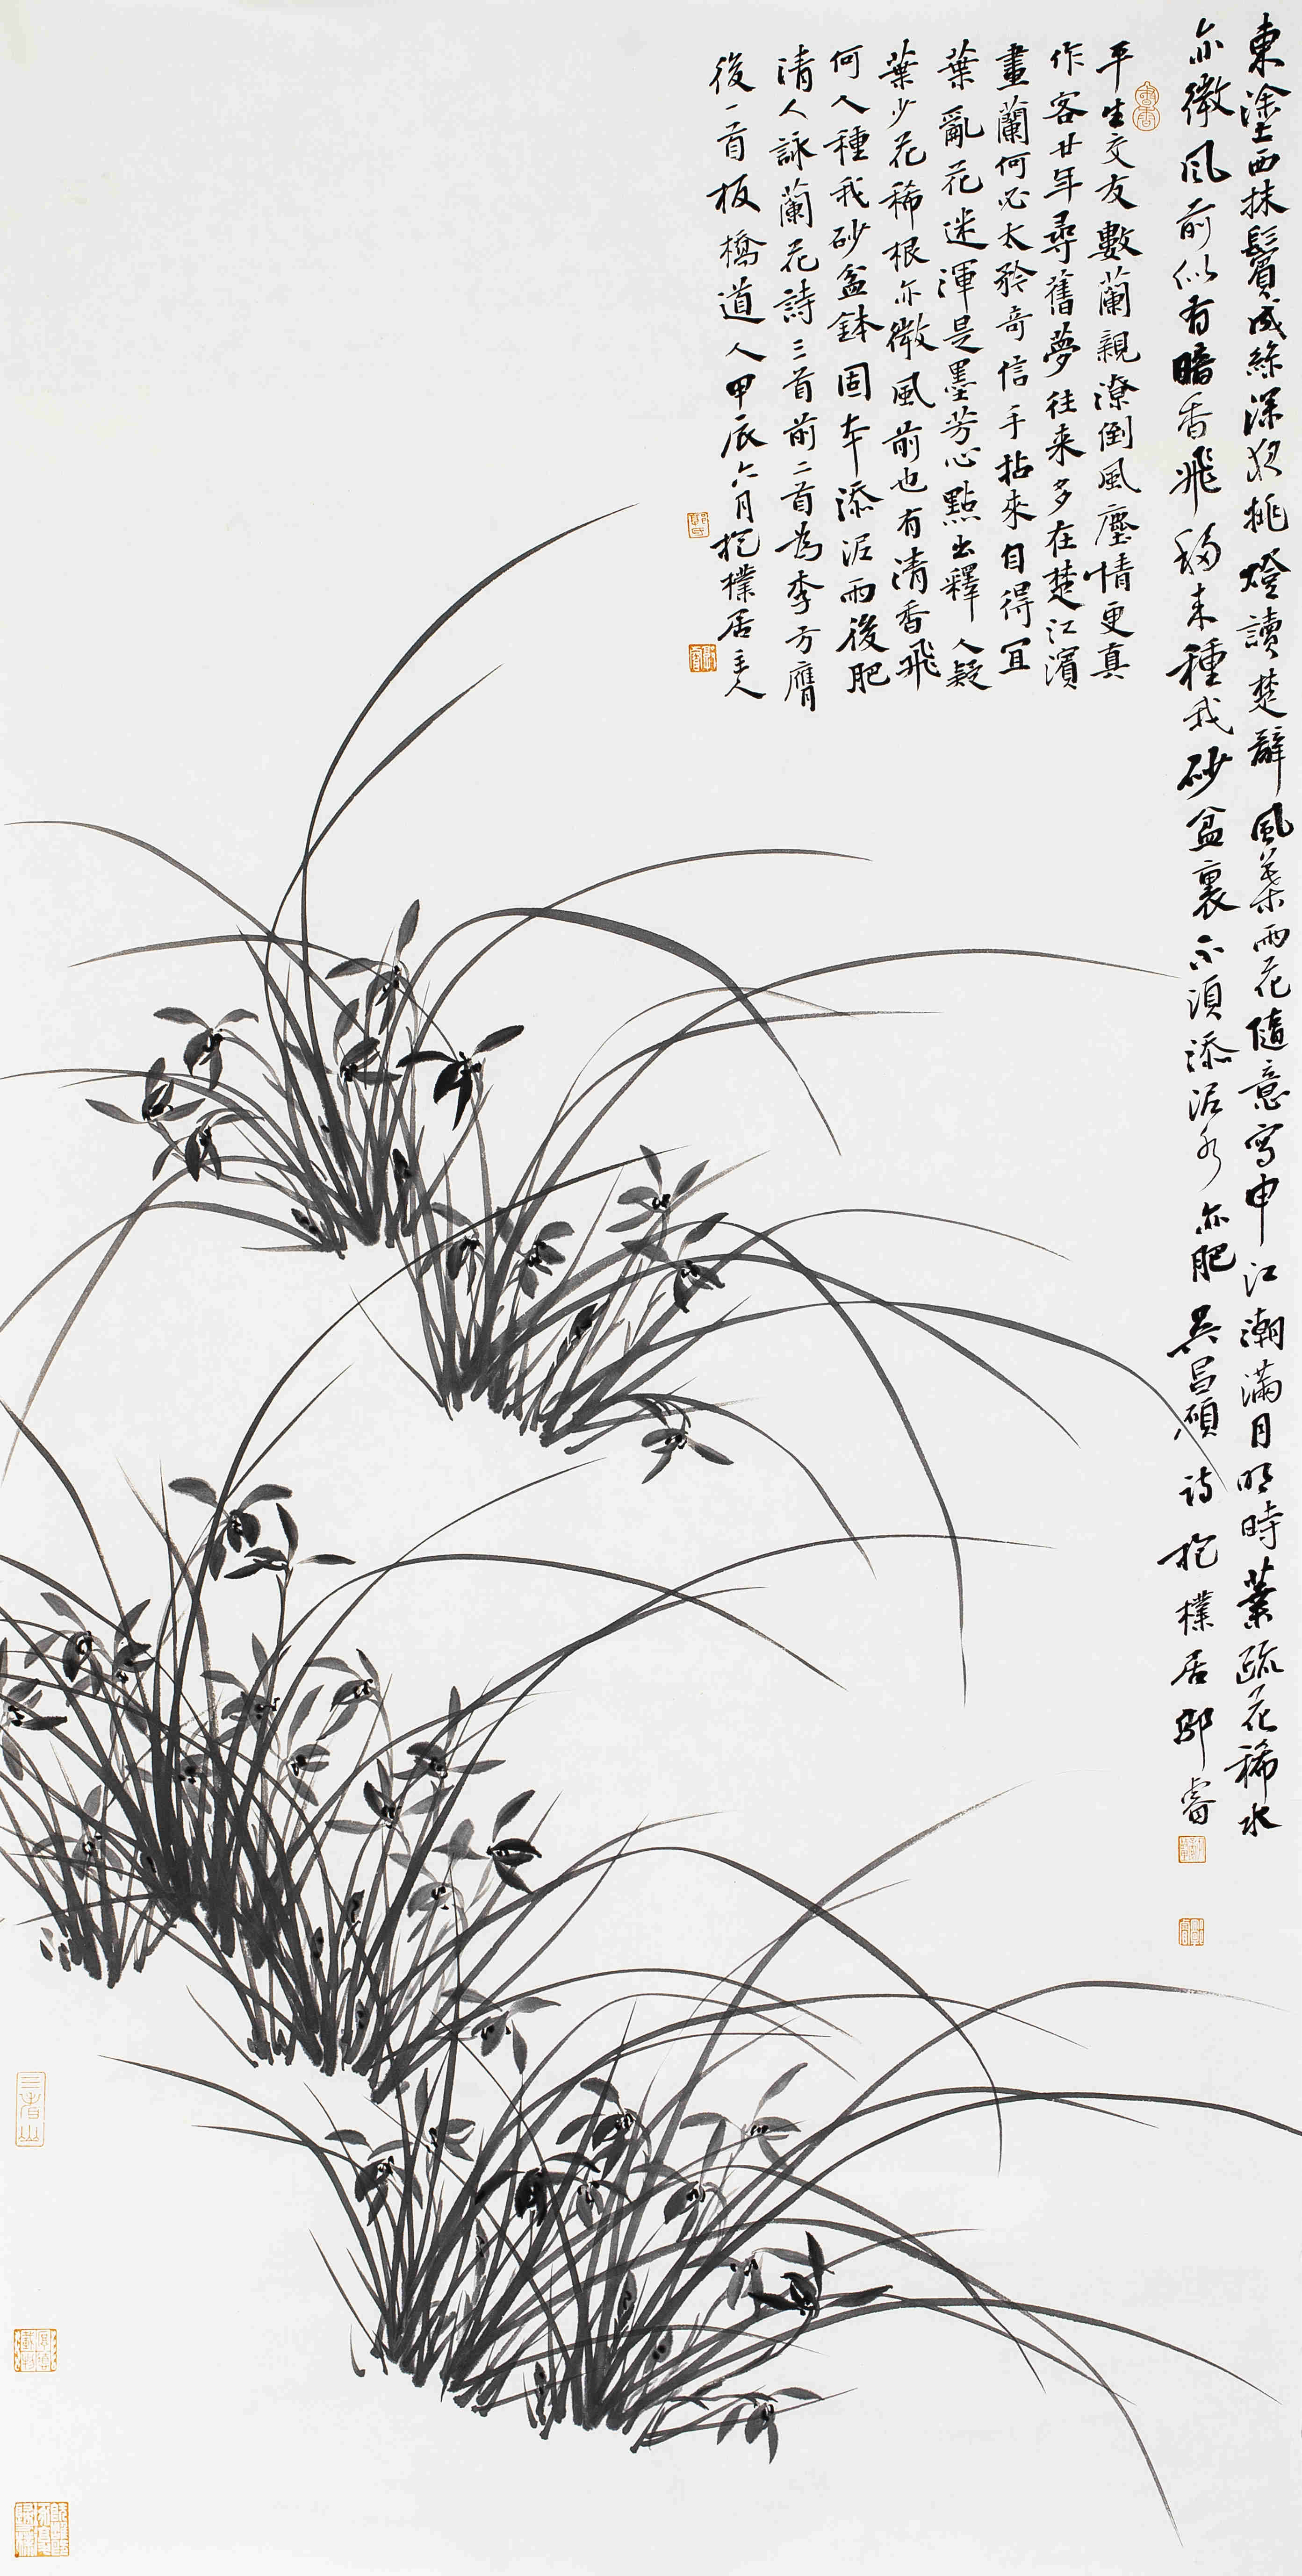 東塗西抹鬢成絲深夜挑燈讀楚辭風葉雨花隨意寫申江潮滿月明時葉疏花稀水
亦微風前似有暗香飛移来種我砂盆裏不須添泥水亦肥吳昌碩詩抱樸居邢睿
平生交友數蘭親潦倒風塵情更真
作客廿年尋舊夢往来多在楚江濱
畫蘭何必太矜奇信手拈來自得宜
葉亂花迷渾是墨芳心點出釋人疑
葉少花稀根亦微風前也有清香飛
何人種我砂盆鉢固本添泥雨後肥
清人詠蘭花詩三首前二首為李方膺
後一首板橋道人甲辰六月抱樸居主人